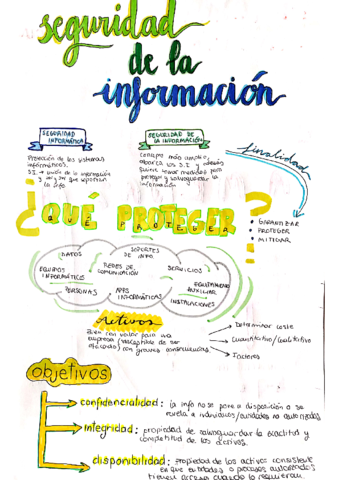 seguridad
de la
información
SEGURIDAD
INFORMÁTICA
SEGURIDAD DE
LA INFORMACIÓN
finalidad
Protección de los sistemas
informáticos.
concepto más amplio,
abarca los S.I y además
tomar medidas para
proteger y salvaguardar la
información
la info
GARANTIZAR
PROTEGER
MITIGAR
¿QUÉ PROTEGER?
DATOS
SOPORTES
DE INFO
EQUIPOS
INFORMÁTICOS
REDES DE
COMUNICACIÓN
SERVICIOS
PERSONAS
APPS
INFORMÁTICAS
EQUIPAMIENTO
AUXILIAR
INSTALACIONES
Activos
Bien con valor para una
empresa (susceptible de ser
atacado) con graves consecuencias.
Determinar coste
Cuantitativo/cualitativo
Factores
objetivos
confidencialidad: la info no se pone a disposición o se
revela a individuos/entidades no autorizadas
integridad: propiedad de salvaguardar la exactitud y
completitud de los activos.
disponibilidad: propiedad de los activos consistente
en que entidades o procesos autorizados
tienen acceso cuando lo requieran.